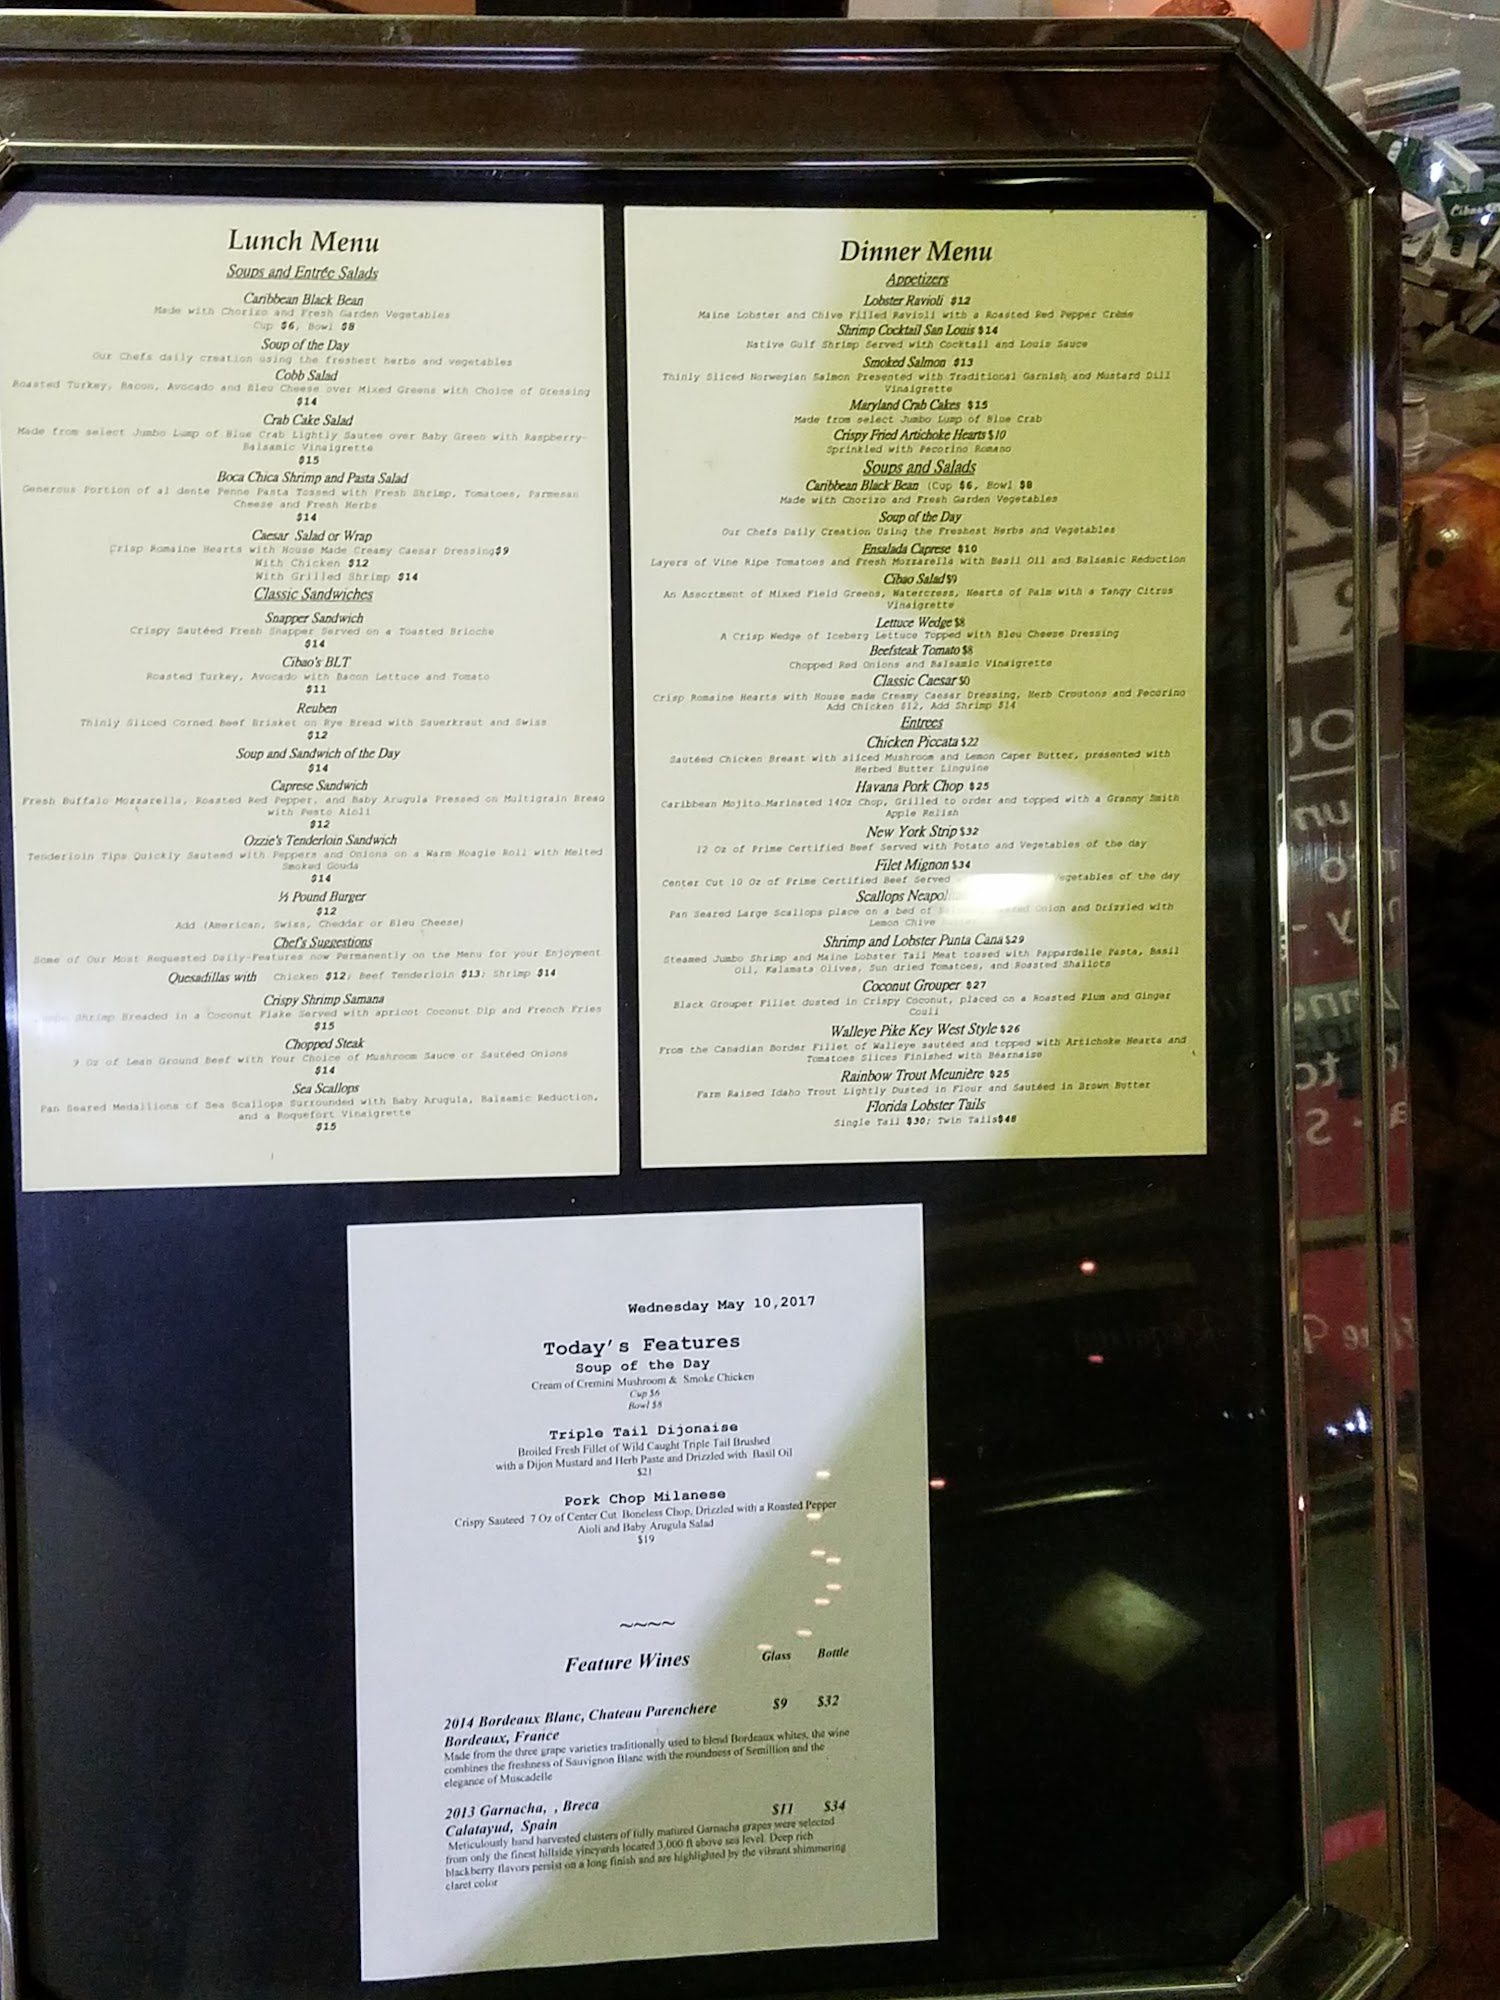 Lunch Menu
Soups and Entrée Salads
Caribbean Black Bean
Made with Chorizo and Fresh Garden Vegetables
Cup $6, Bowl $8
Soup of the Day
Our Chefs daily creation using the freshest herbs and vegetables
Cobb Salad
Roasted Turkey, Bacon, Avocado and Bleu Cheese over Mixed Greens with Choice of Dressing
$14
Crab Cake Salad
Made from select Jumbo Lump of Blue Crab Lightly Sautee over Baby Green with Raspberry-
Balsamic Vinaigrette
$15
Boca Chica Shrimp and Pasta Salad
Generous Portion of al dente Penne Pasta Tossed with Fresh Shrimp, Tomatoes, Parmesan
Cheese and Fresh Herbs
$14
Caesar Salad or Wrap
Crisp Romaine Hearts with House Made Creamy Caesar Dressing$9
With Chicken $12
With Grilled Shrimp $14
Classic Sandwiches
Snapper Sandwich
Crispy Sautéed Fresh Snapper Served on a Toasted Brioche
$14
Cibao's BLT
Roasted Turkey, Avocado with Bacon Lettuce and Tomato
$11
Reuben
Thinly Sliced Corned Beef Brisket on Rye Bread with Sauerkraut and Swiss
$12
Soup and Sandwich of the Day
$14
Caprese Sandwich
Fresh Buffalo Mozzarella, Roasted Red Pepper, and Baby Arugula Pressed on Multigrain Bread
with Pesto Aioli
$12
Ozzie's Tenderloin Sandwich
Tenderloin Tips Quickly Sauteed with Peppers and Onions on a Warm Hoagie Roll with Melted
Smoked Gouda
$14
½ Pound Burger
$12
Add (American, Swiss, Cheddar or Bleu Cheese)
Chef's Suggestions
Some of Our Most Requested Daily-Features now Permanently on the Menu for your Enjoyment
Quesadillas with Chicken $12; Beef Tenderloin $13; Shrimp $14
Crispy Shrimp Samana
Shrimp Breaded in a Coconut Flake Served with apricot Coconut Dip and French Fries
$15
Chopped Steak
9 Oz of Lean Ground Beef with Your Choice of Mushroom Sauce or Sautéed Onions
$14
Sea Scallops
Pan Seared Medallions of Sea Scallops Surrounded with Baby Arugula, Balsamic Reduction,
and a Roquefort Vinaigrette
$15
Dinner Menu
Appetizers
Lobster Ravioli $12
Maine Lobster and Chive Filled Ravioli with a Roasted Red Pepper Crème
Shrimp Cocktail San Louis $14
Native Gulf Shrimp Served with Cocktail and Louis Sauce
Smoked Salmon $13
Thinly Sliced Norwegian Salmon Presented with Traditional Garnish and Mustard Dill
Vinaigrette
Maryland Crab Cakes $15
Made from select Jumbo Lump of Blue Crab
Crispy Fried Artichoke Hearts $10
Sprinkled with Pecorino Romano
Soups and Salads
Caribbean Black Bean (Cup $6, Bowl $8
Made with Chorizo and Fresh Garden Vegetables
Soup of the Day
Our Chefs Daily Creation Using the Freshest Herbs and Vegetables
Ensalada Caprese $10
Layers of Vine Ripe Tomatoes and Fresh Mozzarella with Basil Oil and Balsamic Reduction
Cibao Salad $9
An Assortment of Mixed Field Greens, Watercress, Hearts of Palm with a Tangy Citrus
Vinaigrette
Lettuce Wedge $8
A Crisp Wedge of Iceberg Lettuce Topped with Bleu Cheese Dressing
Beefsteak Tomato $8
Chopped Red Onions and Balsamic Vinaigrette
Classic Caesar
Crisp Romaine Hearts with House made Creamy Caesar Dressing, Herb Croutons and Pecorino
Add Chicken $12, Add Shrimp $14
Entrees
Chicken Piccata $22
Sautéed Chicken Breast with sliced Mushroom and Lemon Caper Butter, presented with
Herbed Butter Linguine
Havana Pork Chop $25
Caribbean Mojito Marinated 14Oz Chop, Grilled to order and topped with a Granny Smith
Apple Relish
New York Strip $32
12 Oz of Prime Certified Beef Served with Potato and Vegetables of the day
Filet Mignon $34
Center Cut 10 Oz of Prime Certified Beef Served egetables of the day
Scallops Neapol
Pan Seared Large Scallops place on a bed of Onion and Drizzled with
Lemon Chive
Shrimp and Lobster Punta Cana $29
Steamed Jumbo Shrimp and Maine Lobster Tail Meat tossed with Pappardelle Pasta, Basil
Oil, Kalamata Olives, Sun dried Tomatoes, and Roasted Shallots
Coconut Grouper $27
Black Grouper Fillet dusted in Crispy Coconut, placed on a Roasted Plum and Ginger
Couli
Walleye Pike Key West Style $26
From the Canadian Border Fillet of Walleye sautéed and topped with Artichoke Hearts and
Tomatoes Slices Finished with Béarnaise
Rainbow Trout Meunière $25
Farm Raised Idaho Trout Lightly Dusted in Flour and Sautéed in Brown Butter
Florida Lobster Tails
Single Tail $30; Twin Tails$48
Wednesday May 10,2017
Today's Features
Soup of the Day
Cream of Cremini Mushroom & Smoke Chicken
Cup $6
Bowl $8
Triple Tail Dijonaise
Broiled Fresh Fillet of Wild Caught Triple Tail Brushed
with a Dijon Mustard and Herb Paste and Drizzled with Basil Oil
$21
Pork Chop Milanese
Crispy Sauteed 7 Oz of Center Cut Boneless Chop, Drizzled with a Roasted Pepper
Aioli and Baby Arugula Salad
$19
~~~~
Feature Wines Glass Bottle
2014 Bordeaux Blanc, Chateau Parenchere $9 $32
Bordeaux, France
Made from the three grape varieties traditionally used to blend Bordeaux whites, the wine
combines the freshness of Sauvignon Blanc with the roundness of Semillion and the
elegance of Muscadelle
2013 Garnacha, , Breca $11 $34
Calatayud, Spain
Meticulously hand harvested clusters of fully matured Garnacha grapes were selected
from only the finest hillside vineyards located 3,000 ft above sea level. Deep rich
blackberry flavors persist on a long finish and are highlighted by the vibrant shimmering
claret color